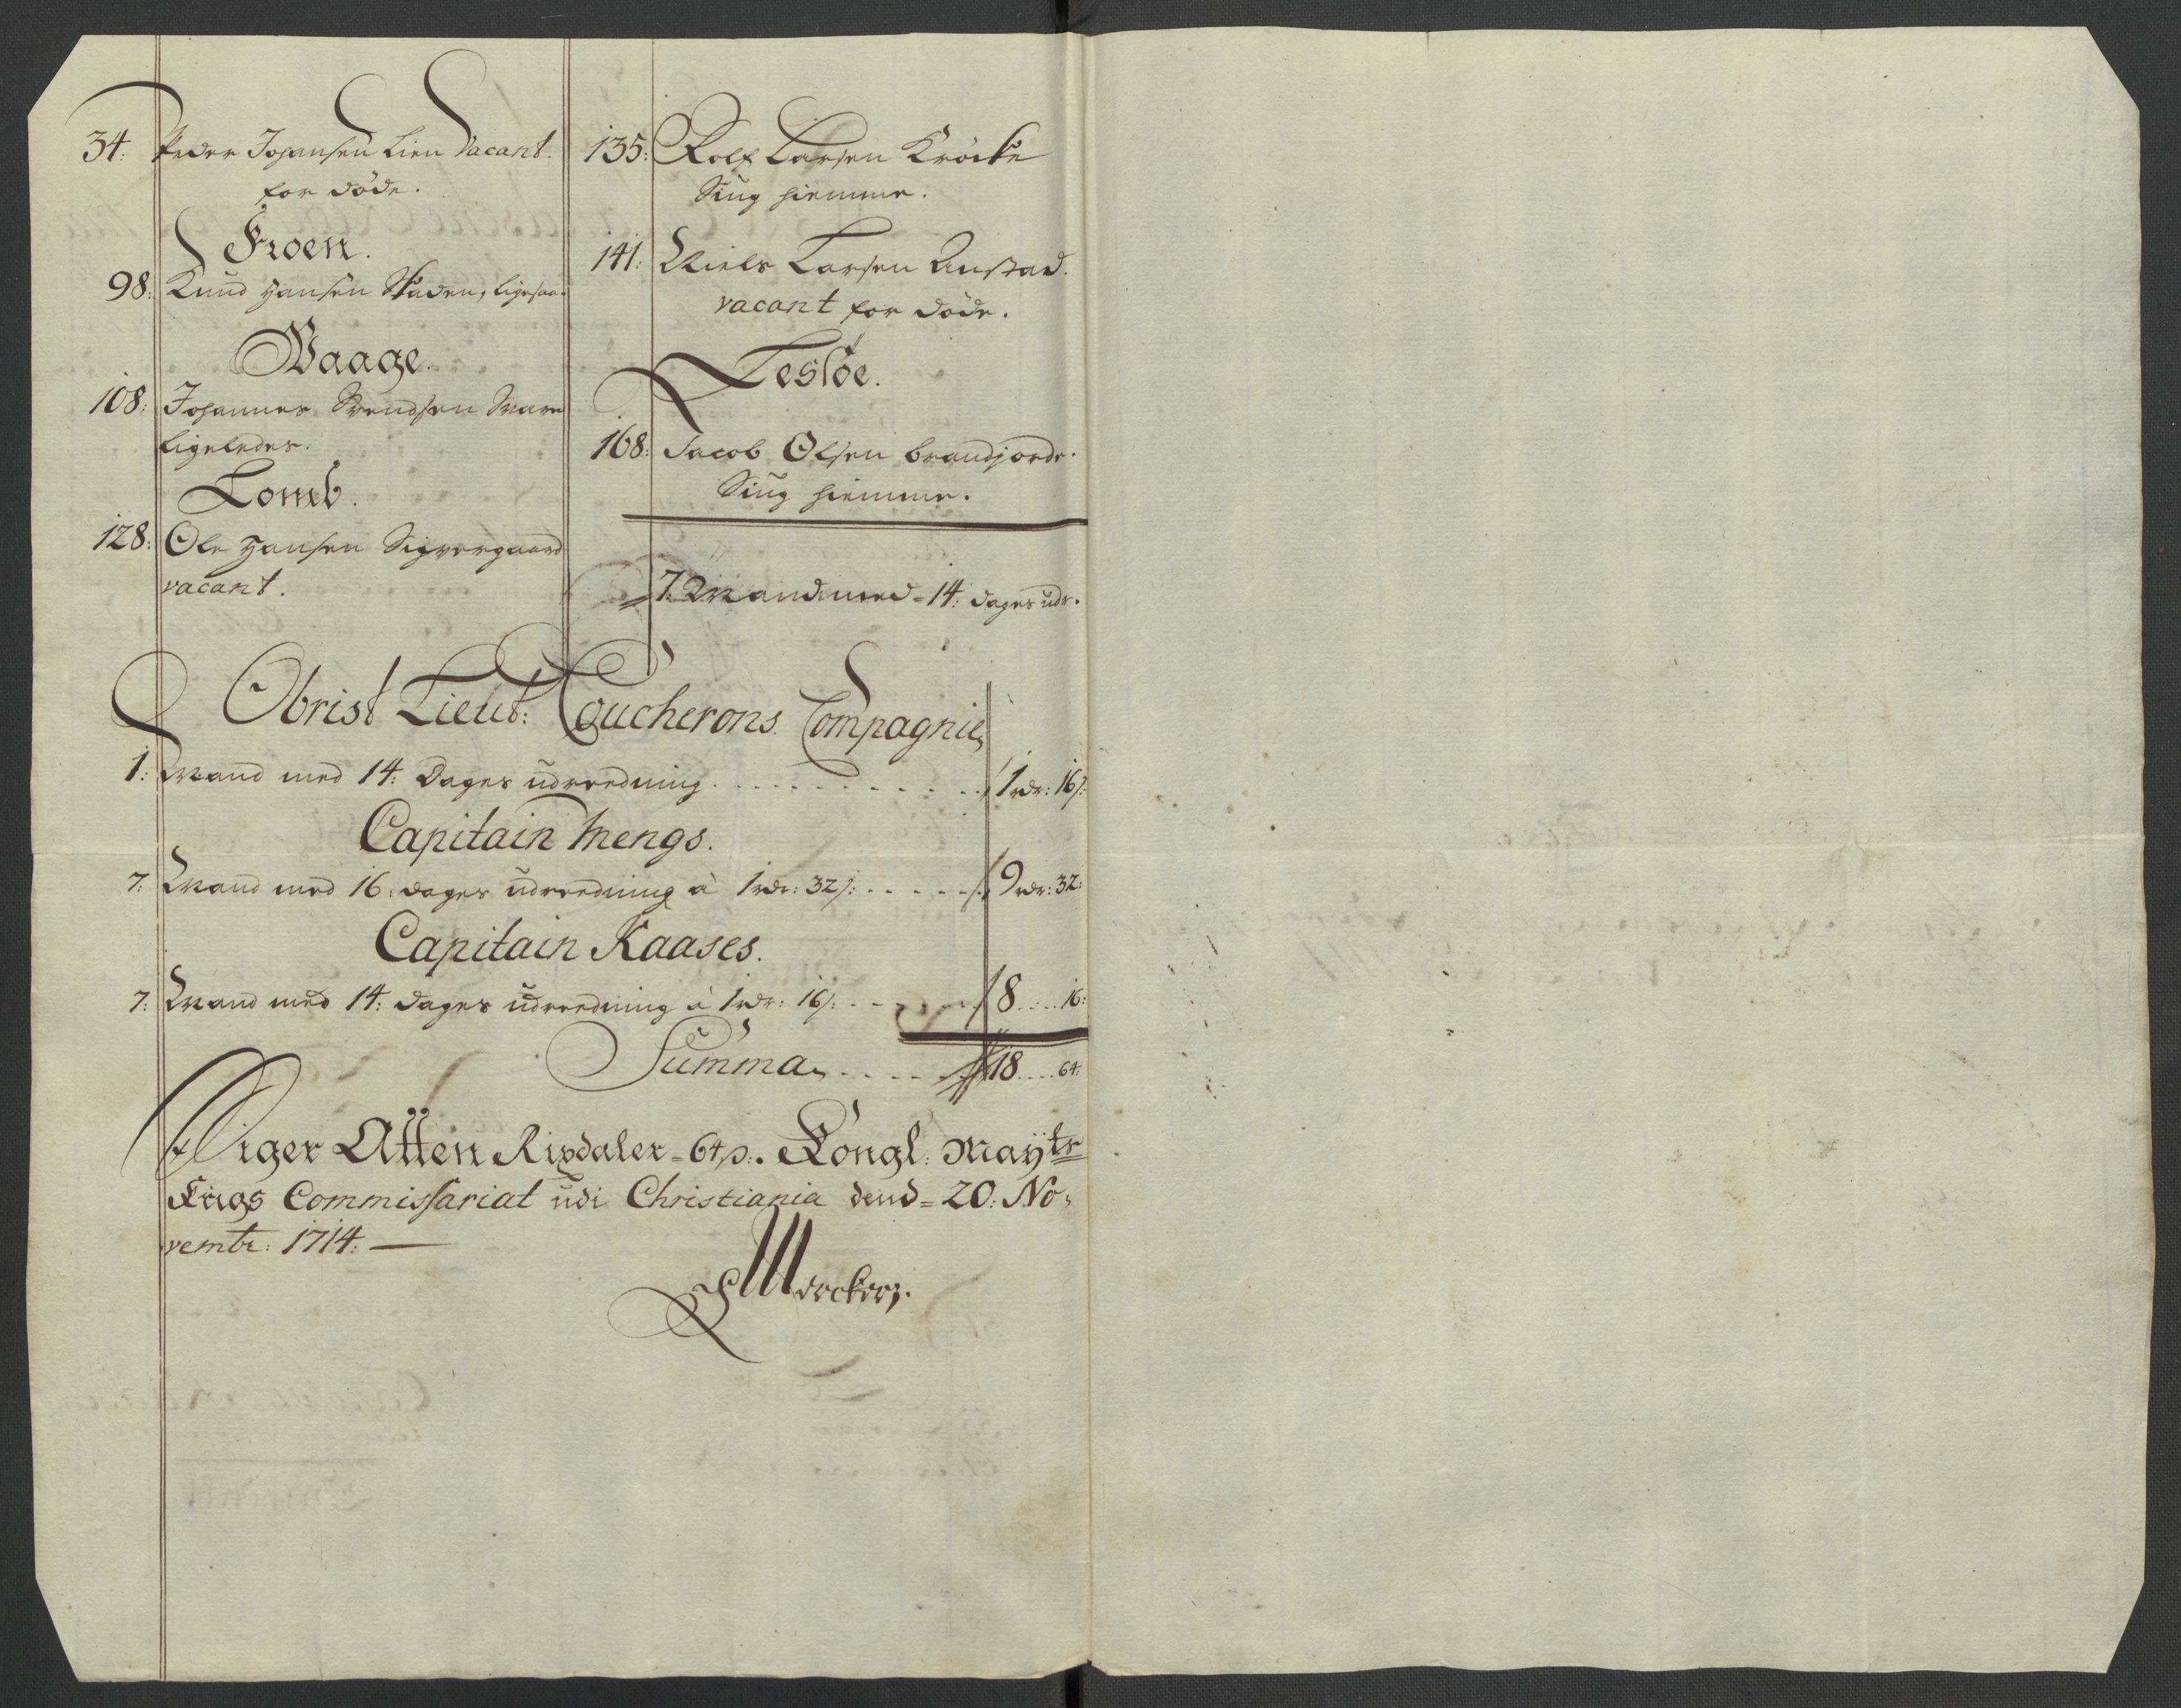 34: Peder Johansen Lien Vacant.
for døde.
Froen.
98: Knud Hansen Staden, ligesaa.
Waage.
108: Johannes Svendsen
ligeledes.
Lomb.
128: Ole Hansen Sigvergaard
vacant.
135: Rolf Larsen Kröcke
Siug hiemme.
141: Niels Larsen Anstad.
vacant for døde.
Lesløe.
168: Jacob Olsen brandjorde.
Siug hiemme.
7: Mand med = 14: dages udr.
Obrist Lieut: Coucherons Compagnie,
1: Mand med 14: Dages udreedning . . . . . . . . . 1 rdr: 16 s:
Capitain Mengs.
7: Mand med 16: dages udreedning à 1 rdr: 32 s: . . . . . 9 rdr: 32:
Capitain Kaases.
7: Mand med 14: dages udreedning à 1 rdr: 16 s: . . . . 8 . . . 16:
Summa . . . . . 18 . . . 64:
Siger Atten Rixdaler = 64 s:. Kongl: Mayts
Krigs Commissariat udi Christiania dend = 20: No-
vembr: 1714: —
Mercker.